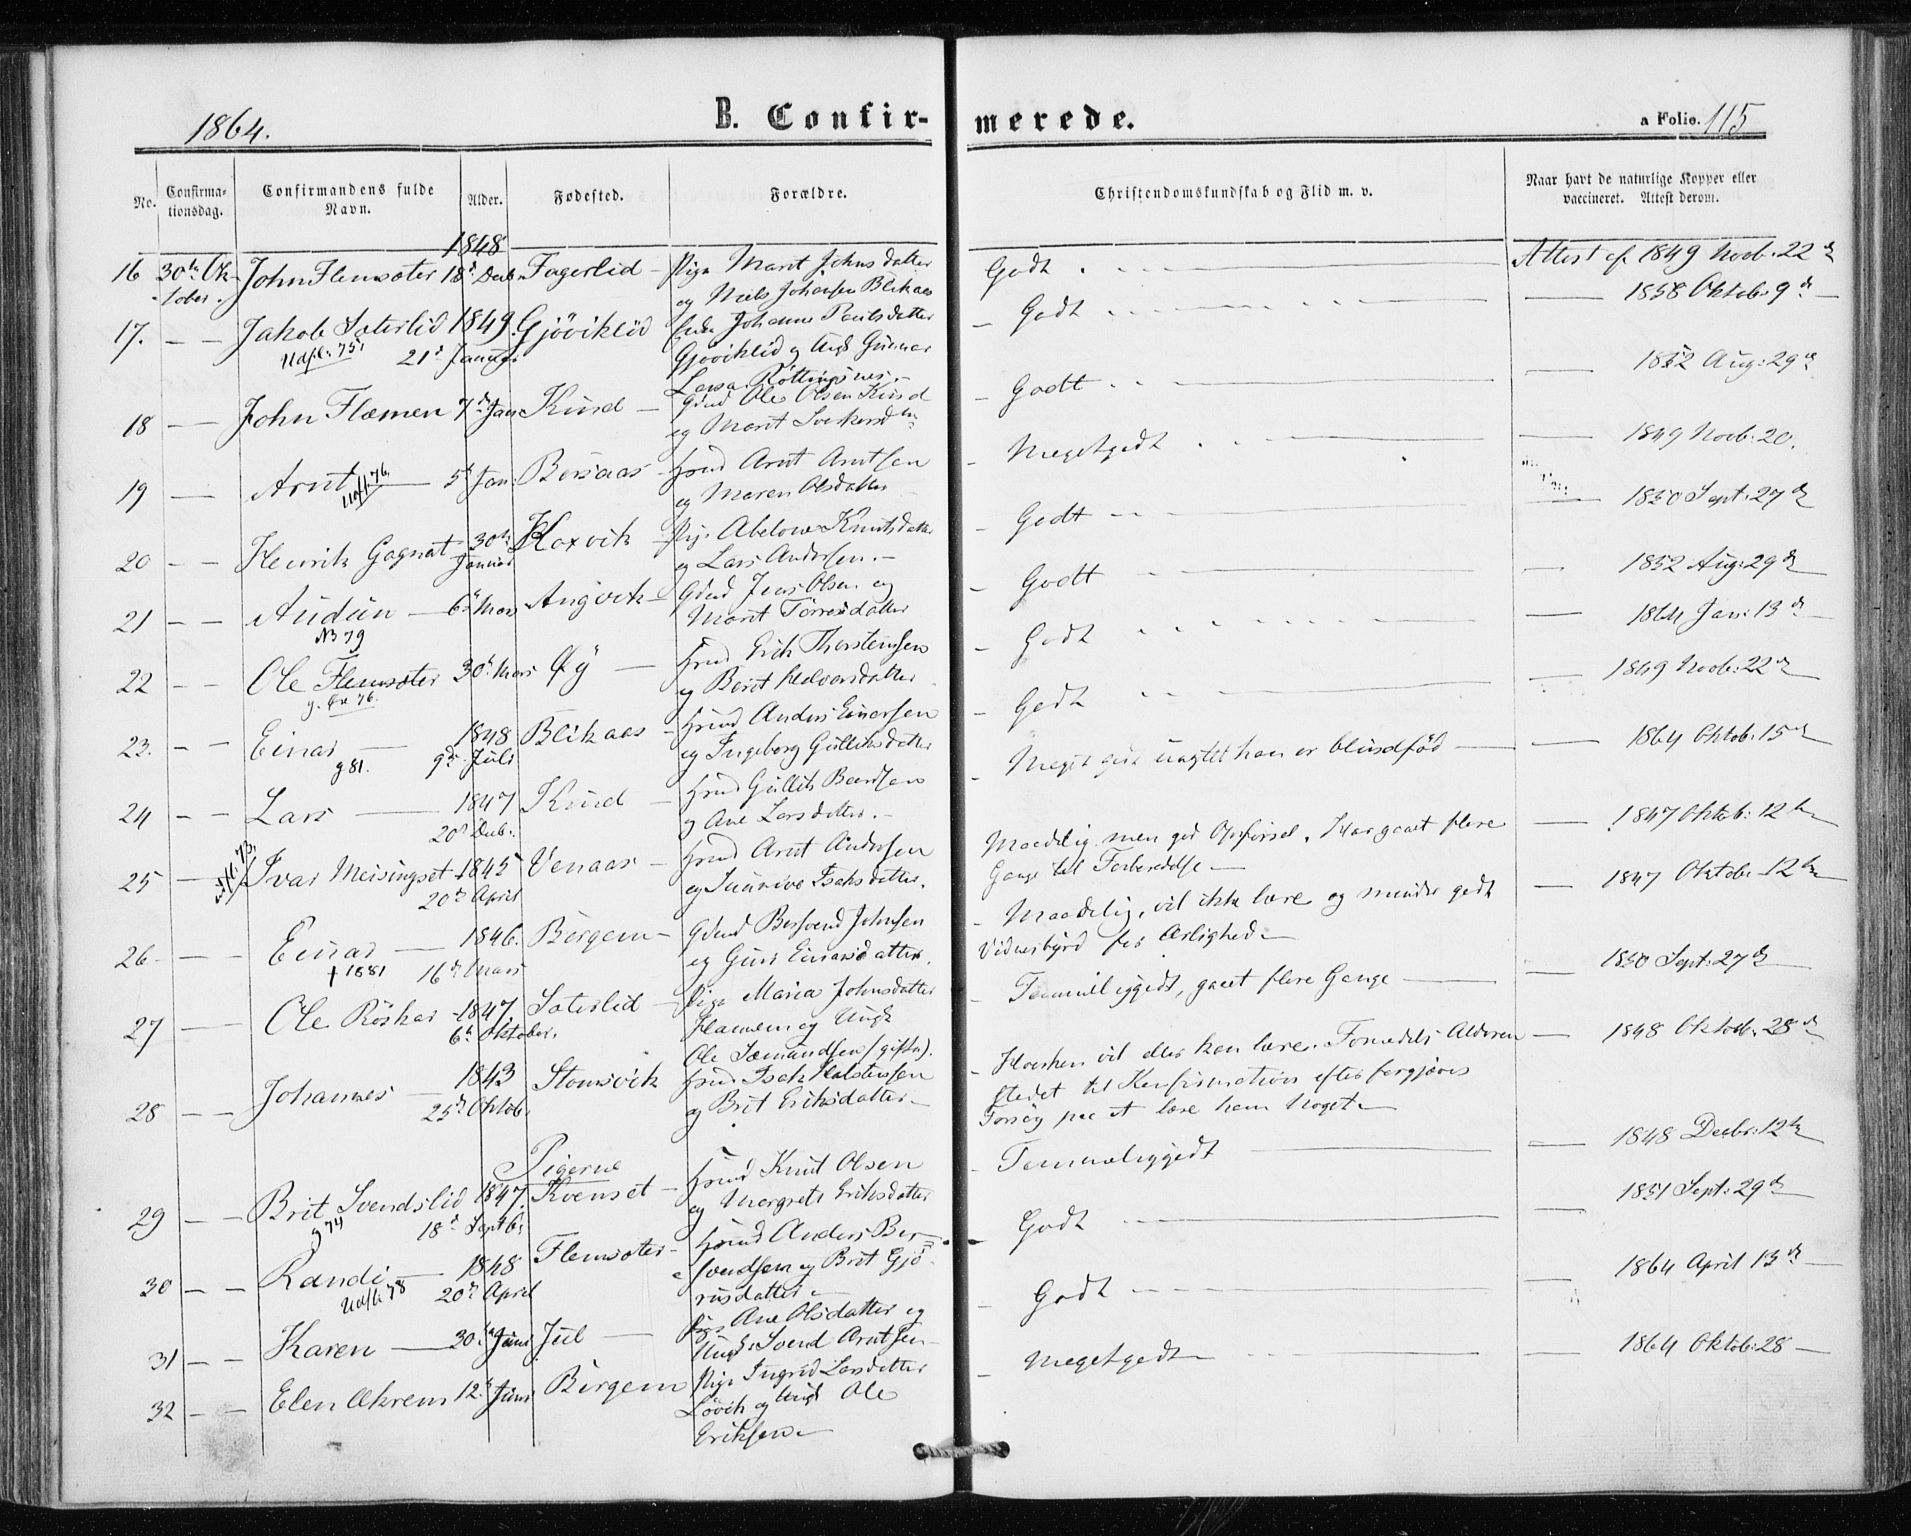 1864.
B. Confir-
merede.
a Folio. 115
No.
Confirma-
tionsdag.
Confirmandens fulde
Navn.
Alder.
Fødested.
Forældre.
Christendomskundskab og Flid m. v.
Naar havt de naturlige Kopper eller
vaccineret. Attest derom.
1848
16 30te Ok- John Flemsæter 18d Decb. Fagerlid Pige Marit Johnsdatter
tober. og Niels Johansen Blikaas
Godt
Attest af 1849 Novb. 22de
17. Jakob Sæterlid 1849. Gjöviklid Enke Johanne Paulsdatter
Udfl. 75 21d Januar Gjöviklid og Ungk Gunnar
Larsen Röttingsnes.
Godt
1858 Oktob. 9de
18 John Flæmen 7d Jan Kind Gdmd Ole Olsen Kind
og Marit
Godt
1852 Aug. 29de
19 Arnt 5d Jan. Bersaas Hmd Arnt Arntsen
Udfl. 76 og Maren Olsdatter
Megetgodt
1849 Novb. 20.
20 Henrik Gagnat 30te Koxvik Pige Abelone Knutsdatter
Januar og Lars Andersen.
Godt
1850 Sept. 27de
21 Audun 6d Mars Angvik Gdmd Jens Olsen og
N3 79 Marit Torresdatter
Godt
1852 Aug. 29de
22 Ole Flemsæter 30d Mars Øÿ Hmd Erik Thorstensen
76. og Berit Halvorsdatter
Godt
1864 Jan. 13de
23. Einar 1848 Blikaas Hmd Anders Einarsen
g 81. 9de Juli og Ingeborg Gulliksdatter
Godt
1849 Novb. 22de
24 Lars 1847 Kind Hmd Gullik Baardsen
20d Decb. og Ane Larsdatter.
Meget godt uagtet han er blindfød
1864 Oktob. 15de
25 Ivar Meisingset 1845 Venaas Hmd Arnt Andersen
73. 20de April og Isaksdatter.
Maadelig men god Opførsel. Har gaaet flere
Gange til Forberedelse
1847 Oktob. 12te
26. Einar 1846. Bergem Gdmd Bersvend Johnsen
† 1881 16de Mars og Guri Einarsdatter.
Maadelig, vil ikke lære og mindre godt
Vidnesbyrd for Ærlighed
1847 Oktob. 12te
27 Ole Röskar 1847. Sæterlid Pige Maria Johnsdatter
6te Oktober. Flæmem og Ungk
Ole Sæmundsen (gifta).
Temmeliggodt, gaaet flere Gange
1850 Sept. 27de
28 Johannes 1843 Stomsvik Hmd Isak Halstensen
25de Oktob. og Brit Eriksdatter
Hverken vil eller kan lære. Formedelst Alderen
stedet til Konfirmation efter forgjæves
Forsøg paa at lære ham Noget
1848 Oktob. 28de
Pigerne
29 Brit Svendslid 1847. Kvenset Hmd Knut Olsen
g 74 18d Septb. og Margrete Eriksdatter
Temmeliggodt
1848 Decbr. 12te
30 Randi 1848 Flemsæter Hmd Anders Ber-
Udfl. 78 20de April svendsen og Brit Gjö-
rusdatter
Godt
1851 Sept. 29de
31 Karen 30te Juni Jul Pige Ane Olsdatter og
Ungk. Svend Arntsen
Godt
1864 April 13de
32 Elen Ækrem 12d Juni Bergem Pige Ingrid Larsdatter
Løvik og Ungk Ole
Eriksen
Megetgodt
1864 Oktob. 28